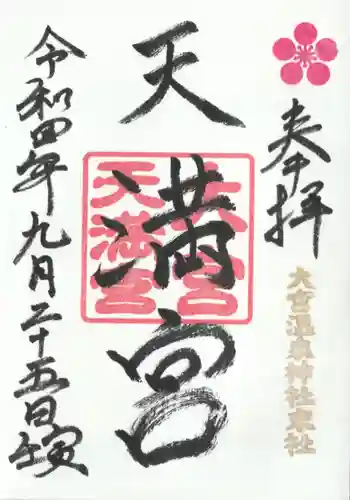 奉拝
大宮温泉神社東社
天満宮
大宮
天満宮
令和四年九月二十五日